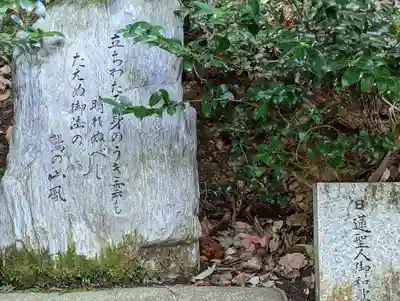 立ちわたる身のうき雲も
晴れぬべし
たえぬ御法の
鷲の山風
日蓮聖人御和